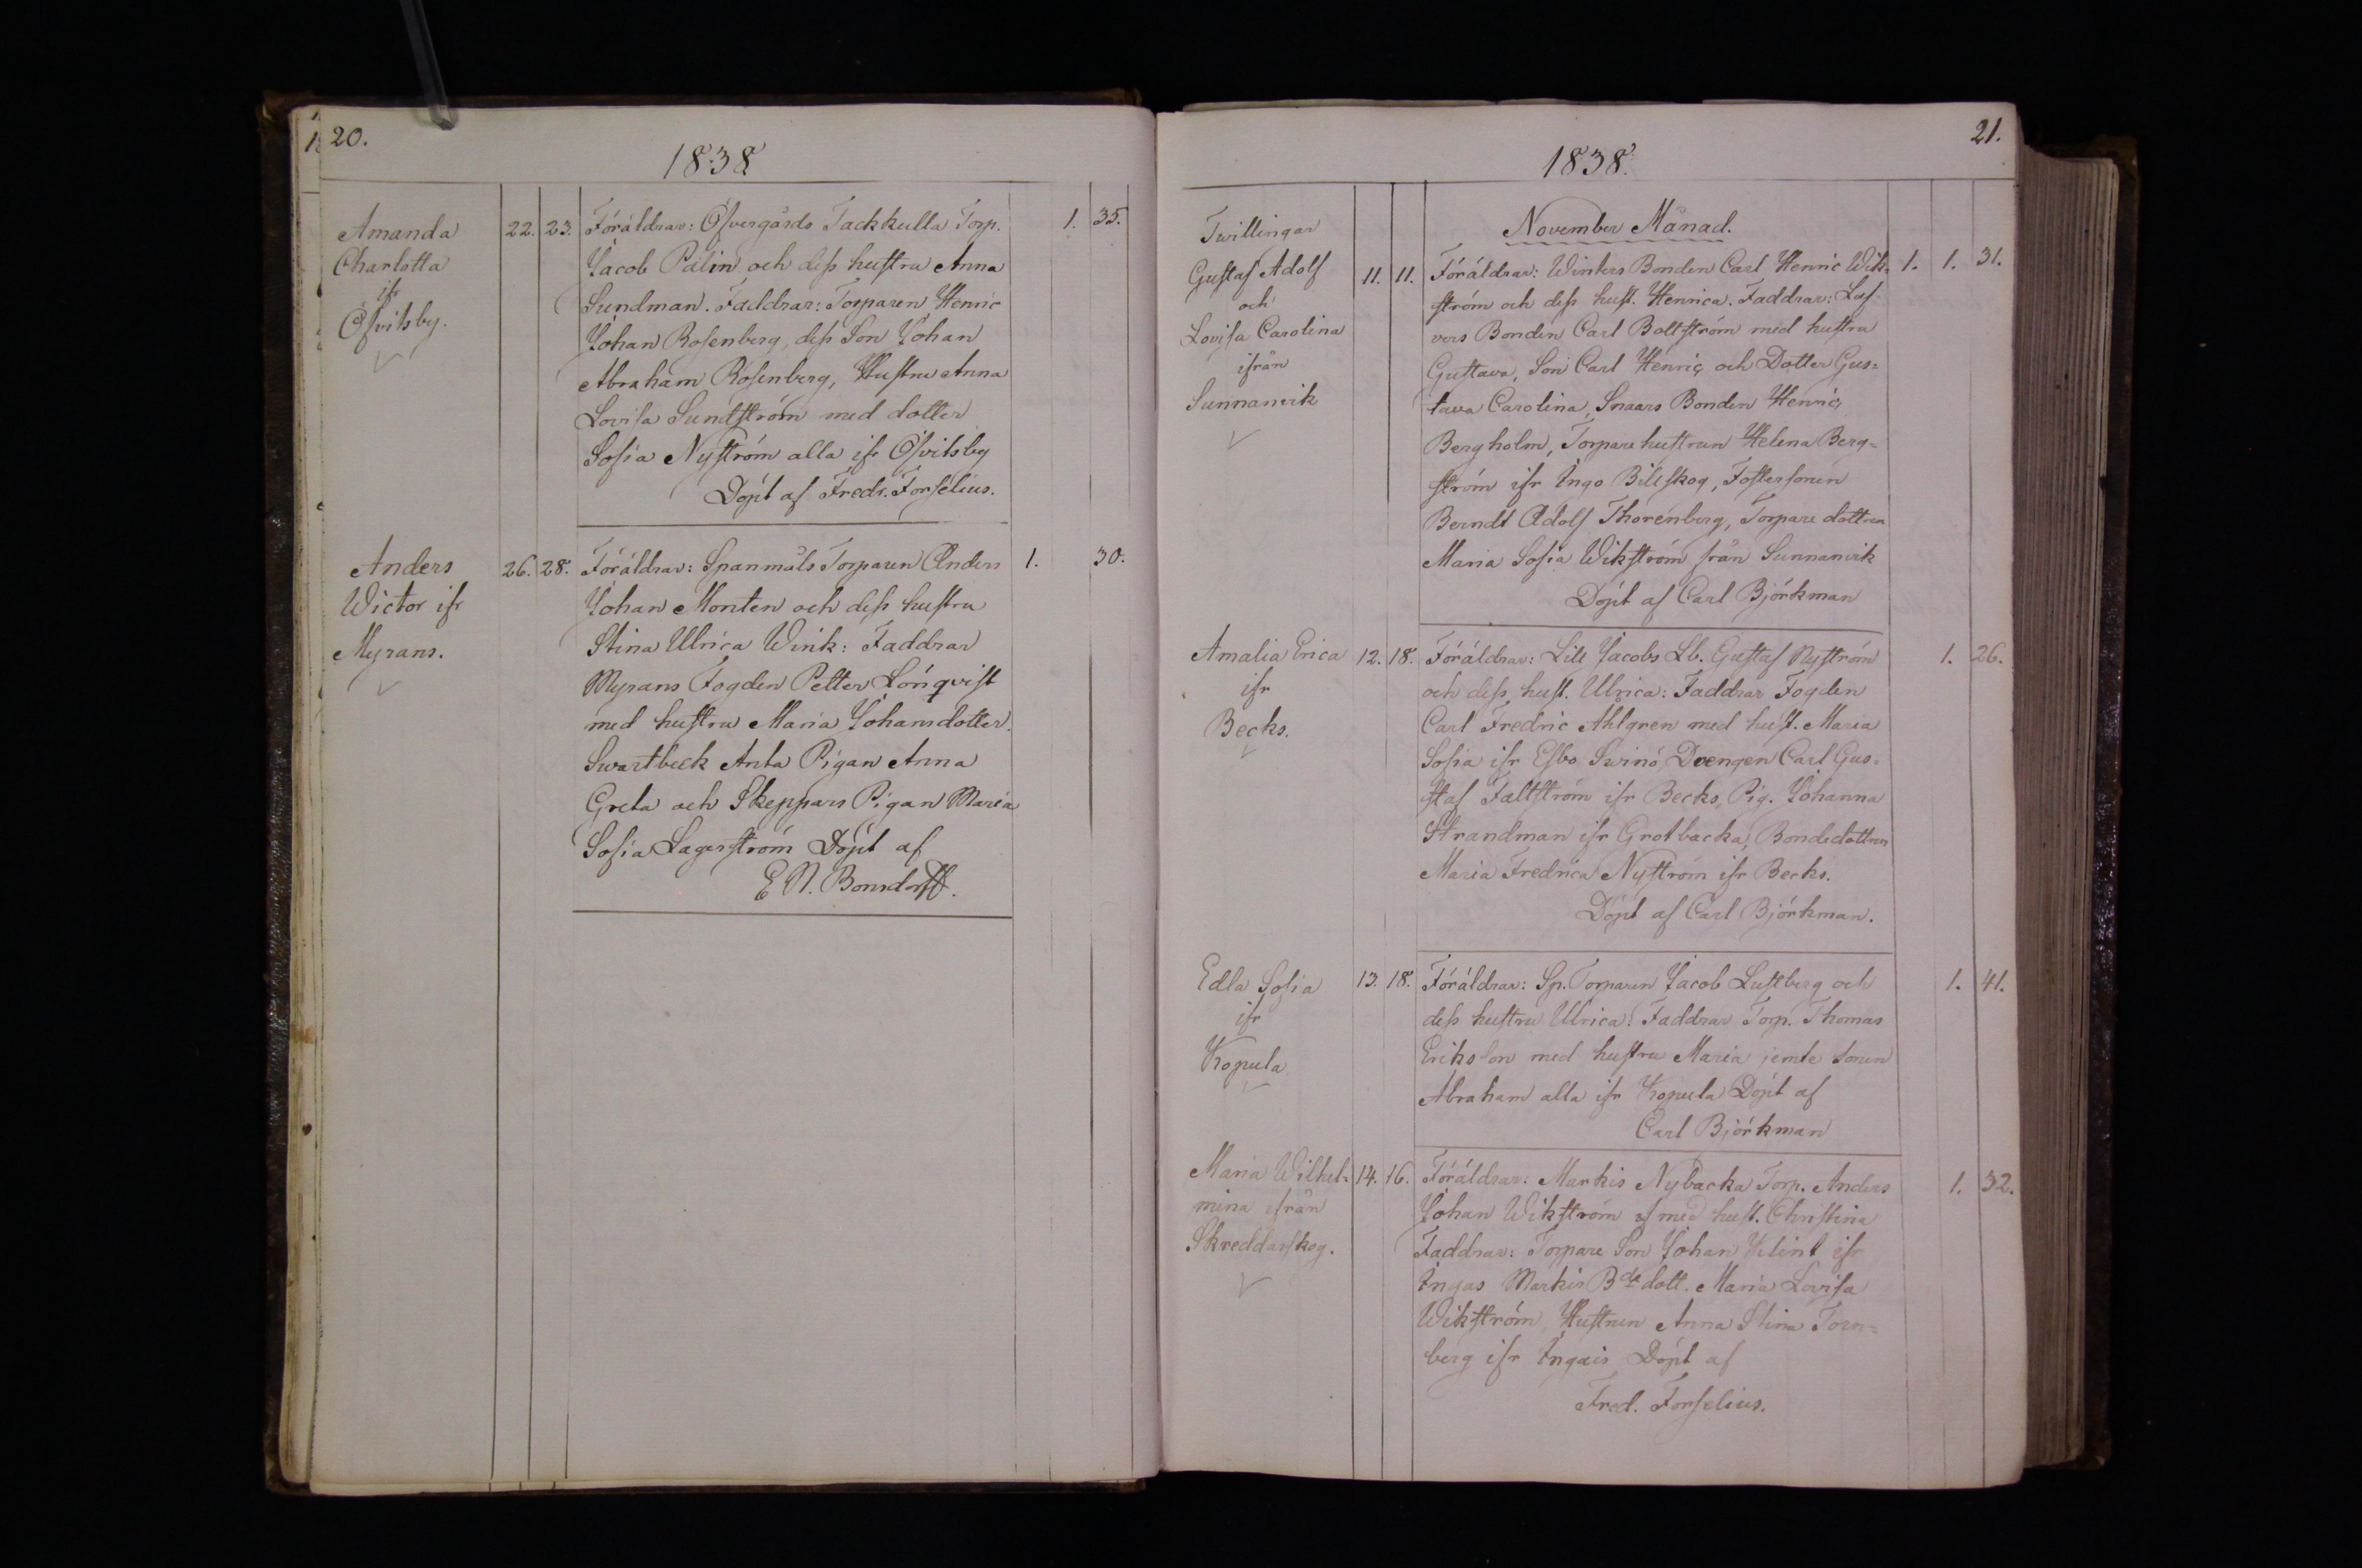 20.
1838
Amanda
Charlotta
ifr
Ofvitsby.
22. 23. Föräldrar: Öfvergårds Tackkulla Torp. 1. 35.
Jacob Palin och dess hustru Anna
Sundman. Faddrar: Torparen Henric
Johan Rosenberg, dess Son Johan
Abraham Rosenberg, Hustru Anna
Lovisa Sundström med dotter
Sofia Nyström alla ifr Ofvitsby
Döpt af Fredr. Forselius.
Anders
Wictor ifr
Myrans.
26. 28. Föräldrar: Spanmåls Torparen Anders 1. 30.
Johan Monten och dess hustru
Stina Ulrica Wink: Faddrar
Myrans Fogden Petter Lönqvist
med hustru Maria Johansdotter.
Swartbeck Anta Pigan Anna
Greta och Skeppars Pigan Maria
Sofia Lagerström Döpt af
E N. Bonsdorff.
21.
1838.
November Månad.
Twillingar
Gustaf Adolf
och
Lovisa Carolina
ifrån
Sunnanvik
11. 11. Föräldrar: Winters Bonden Carl Henric Wik= 1. 1. 31.
ström och dess hust. Henrica. Faddrar: Lüf-
vers Bonden Carl Boltström med hustru
Gustava, Son Carl Henric och Dotter Gus=
tava Carolina, Snaars Bonden Henric
Bergholm, Torpare hustrun Helena Berg=
ström ifr Ingo Billskog, Fostersonen
Berndt Adolf Thorenberg, Torpare dottren
Maria Sofia Wikström från Sunnanvik
Döpt af Carl Björkman
Amalia Erica
ifr
Becks.
12. 18. Föräldrar: Lill Jacobs Lb. Gustaf Nyström 1. 26.
och dess hust. Ulrica: Faddrar Fogden
Carl Fredric Ahlgren med hust. Maria
Sofia ifr Esbo Svinö, Drengen Carl Gus=
taf Faltström ifr Becks, Pig. Johanna
Strandman ifr Grotbacka, Bondedottren
Maria Fredrica Nyström ifr Becks.
Döpt af Carl Björkman.
Edla Sofia
ifr
Kopula
13. 18. Föräldrar: Sp. Torparen Jacob Lustberg och 1. 41.
dess hustru Ulrica: Faddrar Torp. Thomas
Eriksson med hustru Maria jemte sonen
Abraham alla ifr Kopula Döpt af
Carl Björkman
Maria Wilhel=
mina ifrån
Skreddarskog.
14. 16. Föräldrar: Markis Nybacka Torp. Anders 1. 32.
Johan Wikström med hust. Christina
Faddrar: Torpare Son Johan Klint ifr
Ingas Markis Bde dott. Maria Lovisa
Wikström, Hustrun Anna Stina Torn=
berg ifr Ingais Döpt af
Fred. Forselius.